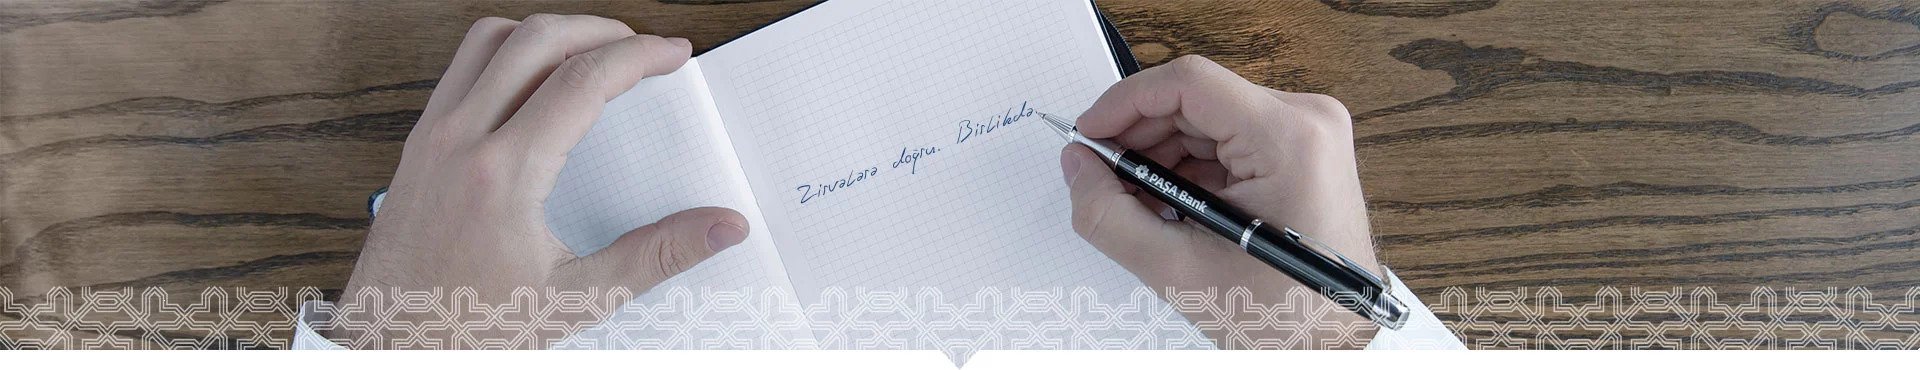 Zirvələrə doğru. Birlikdə.
PAŞA Bank